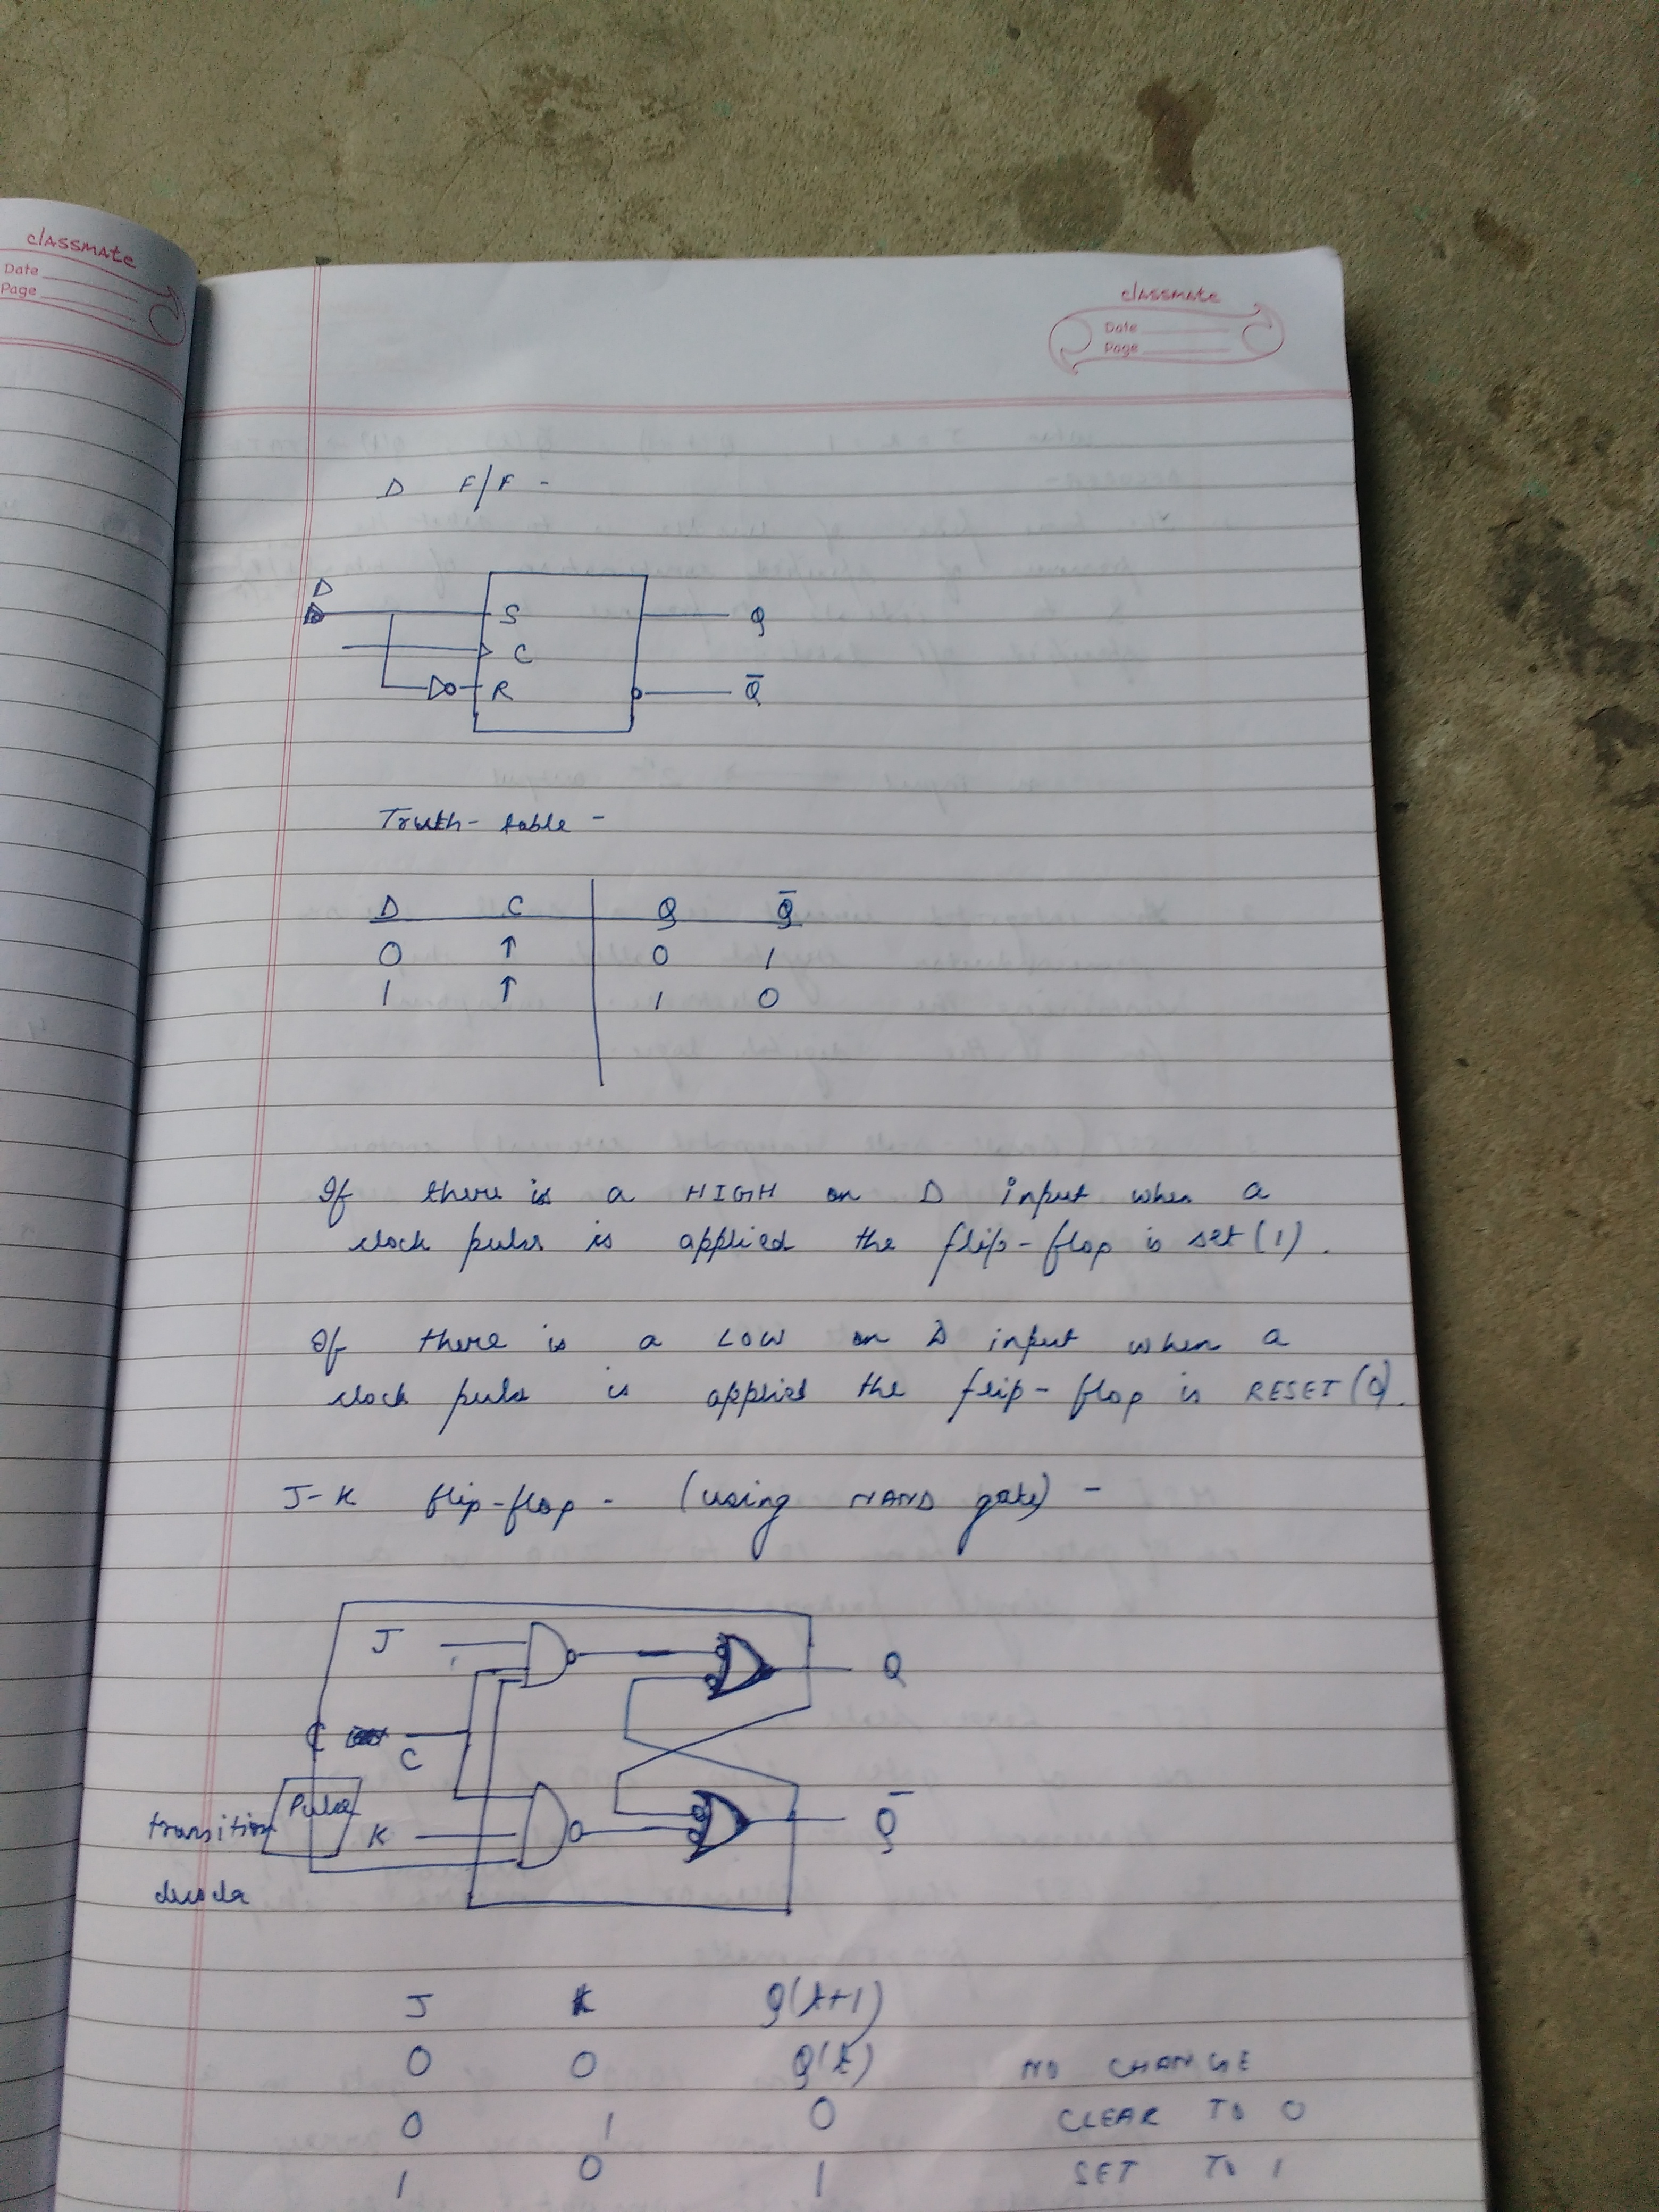 classmate
Date
Page
classmate
Date
Page
D F/F -
D
S
Q
C
R
Q̅
Truth- table -
D C Q Q̅
0 ↑ 0 1
1 ↑ 1 0
If there is a HIGH on D input when a
clock pulse is applied the flip-flop is set (1).
If there is a LOW on D input when a
clock pulse is applied the flip-flop is RESET (0).
J-K flip-flop - (using NAND gate) -
J
Q
C
C
Pulse
transition
K
Q̅
J K Q(t+1)
0 0 Q(t) NO CHANGE
0 1 0 CLEAR TO 0
1 0 1 SET TO 1